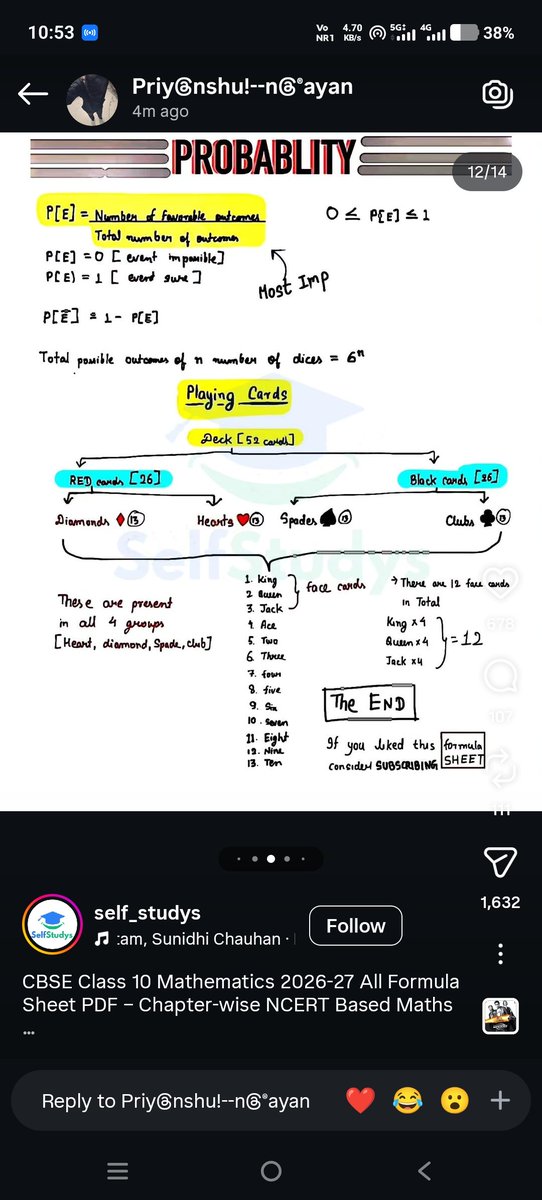 10:53
Vo NR1 4.70 KB/s 5G 4G 38%
Priy@nshu!--n@°ayan
4m ago
PROBABLITY
12/14
P[E] = Number of favorable outcomes
Total number of outcomes
0 ≤ P[E] ≤ 1
P[E] = 0 [event impossible]
P(E) = 1 [event sure]
Most Imp
P[Ē] = 1 - P[E]
Total possible outcomes of n number of dices = 6ⁿ
Playing Cards
Deck [52 cards]
RED cards [26]
Black cards [26]
Diamonds ♦ 13
Hearts ♥ 13
Spades ♠ 13
Clubs ♣ 13
SelfStudys
These are present
in all 4 groups
[Heart, diamond, Spade, club]
1. King
2 Queen
3. Jack
face cards
4. Ace
5. Two
6. Three
7. four
8. five
9. Six
10. Seven
11. Eight
12. Nine
13. Ten
→ There are 12 face cards
in Total
King x 4
Queen x 4
Jack x4
= 12
The END
If you liked this formula
consider SUBSCRIBING SHEET
678
107
111
1,632
SelfStudys
self_studys
:am, Sunidhi Chauhan ·
Follow
CBSE Class 10 Mathematics 2026-27 All Formula
Sheet PDF – Chapter-wise NCERT Based Maths
...
Reply to Priy@nshu!--n@°ayan